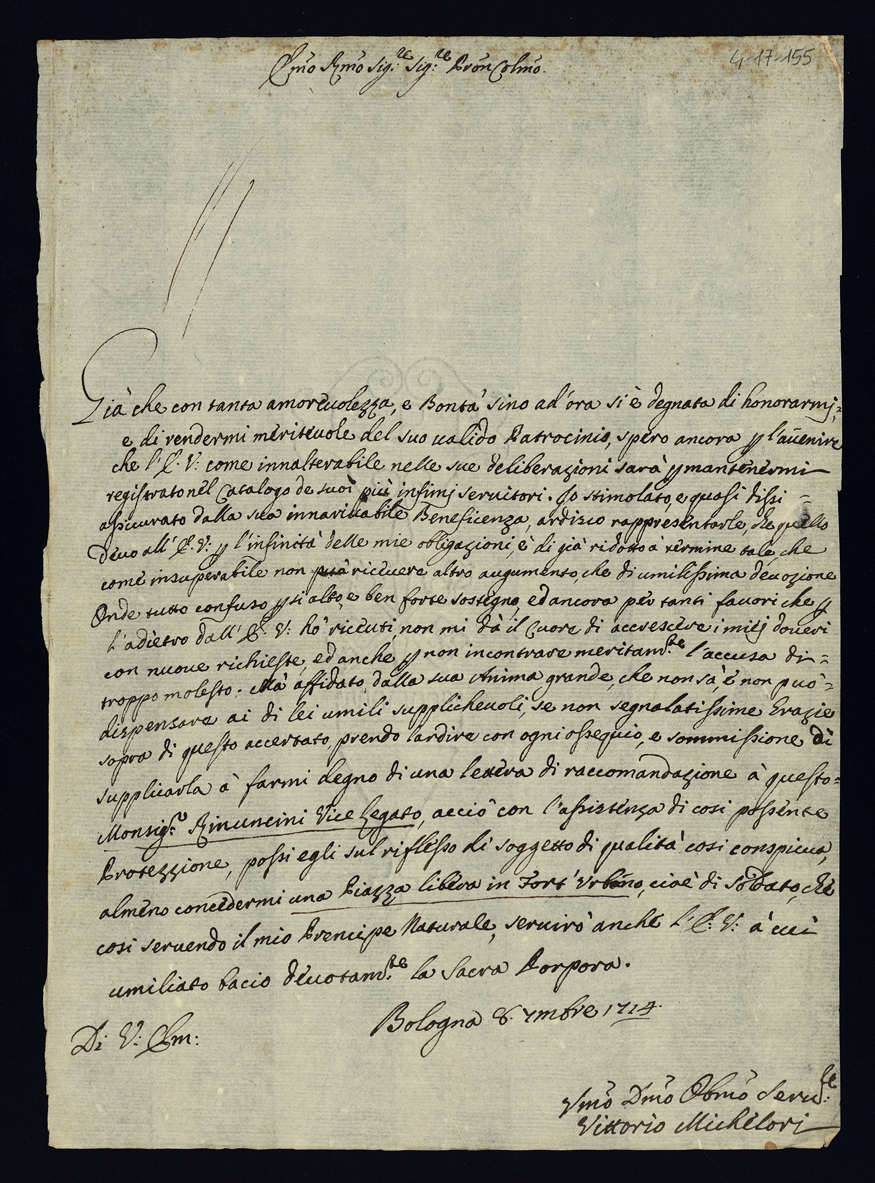 4-17-155
Emo Rmo Sig.re Sig.re Pron Colmo.
Già che con tanta amoreuolezza, e Bontà sino ad'ora si è degnata di honorarmi,=
e di rendermi meriteuole del suo ualido Patrocinio, spero ancora p l'auuenire
che l'E. V: come innalterabile nelle sue deliberazioni sarà p mantenermi
registrato nel Catalogo de suoi più infimj seruitori. Io stimolato, e quasi dissi =
assicurato dalla sua innariuabile Beneficenza, ardisco rappresentarle, che quello
deuo all'E. V: p l'infinità delle mie obligazioni, è di già ridotto à termine tale, che
come insuperabile non può riceuere altro augumento, che di umilissima deuozione
Onde tutto confuso p si alto, e ben forte sostegno, ed ancora per tanti fauori che p
l'adietro dall'E. V: hò riceuti, non mi dà il Cuore di accrescere i miej doueri
con nuoue richieste, ed anche p non incontrare meritam.te l'accusa di =
troppo molesto. Mà affidato dalla sua Anima grande, che non sà, è non può =
dispensare ai di lei umili supplicheuoli, se non segnalatissime Grazie
sopra di questo accertato, prendo l'ardire con ogni ossequio, e sommissione di
supplicarla à farmi degno di una lettera di raccomandazione à questo =
Monsig.r Rinuncini Vice Legato, acciò con l'assistenza di così possente
Protezzione, possi egli sul riflesso di soggetto di qualità così conspicua,
almeno concedermi una Piazza libera in Fort' Urbano, cioè di Soldato, che
così seruendo il mio Prencipe Naturale, seruirò anche l'E. V: à cui
umiliato bacio deuotam.te la Sacra Porpora.
Bologna 8. 7mbre 1714.
Di V: Em:
Vmo Dmo Obmo Seru.re
Vittorio Michelori